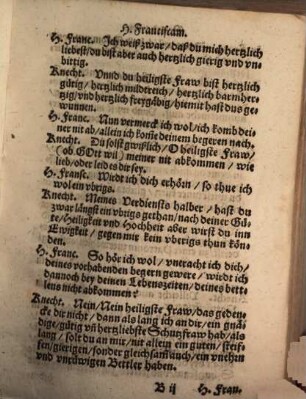 H. Franciscam.
H. Franc. Ich weiß zwar / daß du mich hertzlich
liebest / du bist aber auch hertzlich gierig vnd vn-
bittig.
Knecht. Vnnd du heiligste Fraw bist hertzlich
gütig / hertzlich mildereich / hertzlich barmher-
tzig / vnd hertzlich freygäbig / hiemit hast das ge-
wunnen.
H. Franc. Nun vermerck ich wol / ich komb dei-
ner nit ab / allein ich kome deinem begeren nach.
Knecht. Du solst gwißlich / O heiligste Fraw /
(ob GOtt wil) meiner nit abkommen / wie
lieb / oder leid es dir sey.
H. Franc. Wirdt ich dich erhörn / so thue ich
wol ein vbrigs.
Knecht. Meines Verdiensts halber / hast du
zwar längst ein vbrigs gethan / nach deiner Gü-
te / Heiligkeit vnd Hochheit aber wirst du inn
Ewigkeit / gegen mir kein vberigs thun kön-
den.
H. Franc. So hör ich wol / vneracht ich dich /
deines vorhabenden begern gewere / wirdt ich
dannoch bey deinen Lebenszeiten / deines bett-
lens nicht abkommen?
Knecht. Nein / Nein heiligste Fraw / das geden-
cke dir nicht / dann als lang ich an dir / ein gnä-
dige / gütig vñ hertzliebste Schutzfraw hab / als
lang / solt du an mir / nit allein ein guten / steif-
fen / gierigen / sonder gleichsam auch / ein vnehrn
und vnrüwigen Bettler haben.
B ij H. Fran.